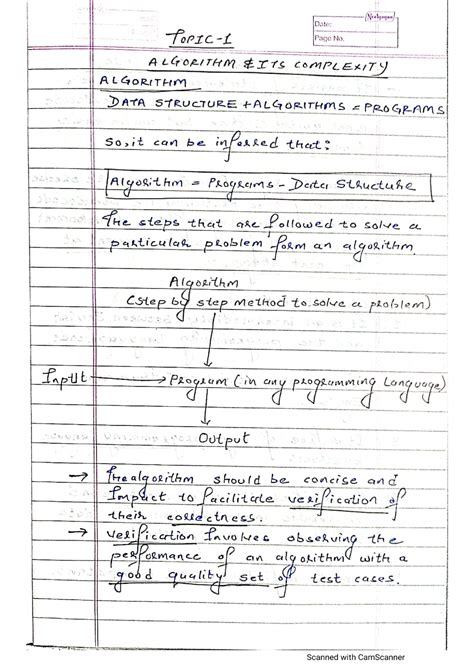 Neelgagan
Date:
Page No.
TOPIC-1
ALGORITHM & ITS COMPLEXITY
ALGORITHM
DATA STRUCTURE + ALGORITHMS = PROGRAMS
So, it can be inferred that:
Algorithm = Programs - Data Structure
The steps that are followed to solve a
particular problem form an algorithm.
Algorithm
(step by step method to solve a problem)
Input
Program (in any programming Language)
Output
→ The algorithm should be concise and
Impact to facilitate verification of
their correctness.
→ verification Involves observing the
performance of an algorithm with a
good quality set of test cases.
Scanned with CamScanner